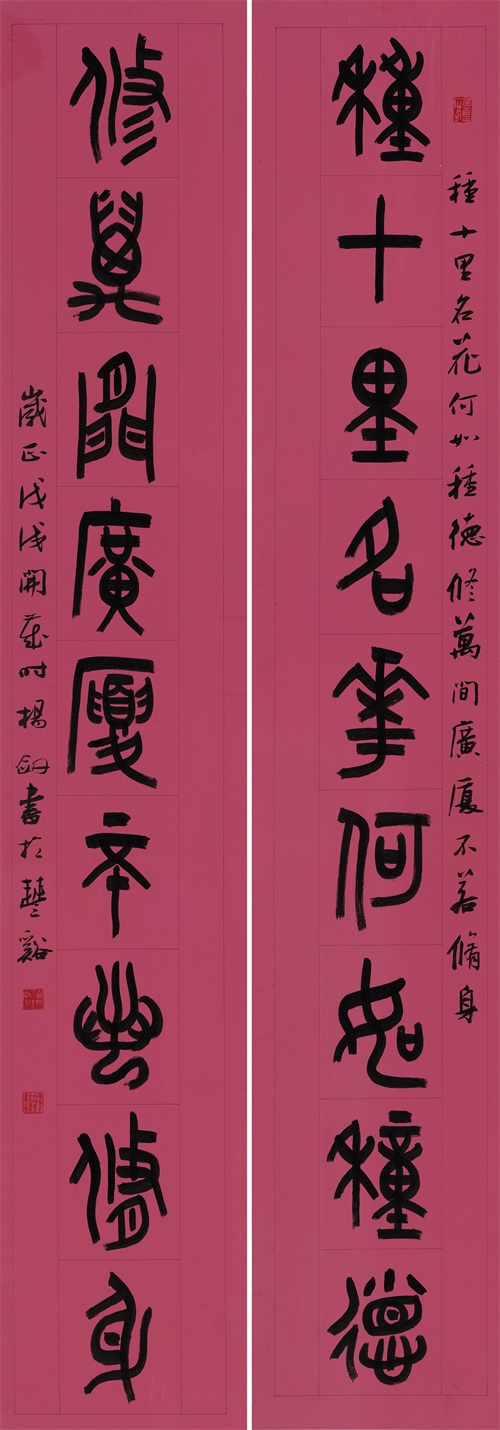 種十里名花何如種德
種十里名花何如種德修萬間廣廈不若脩身
修萬間廣廈不若脩身
歲在戊戌開歲時楊劍書於豐谿